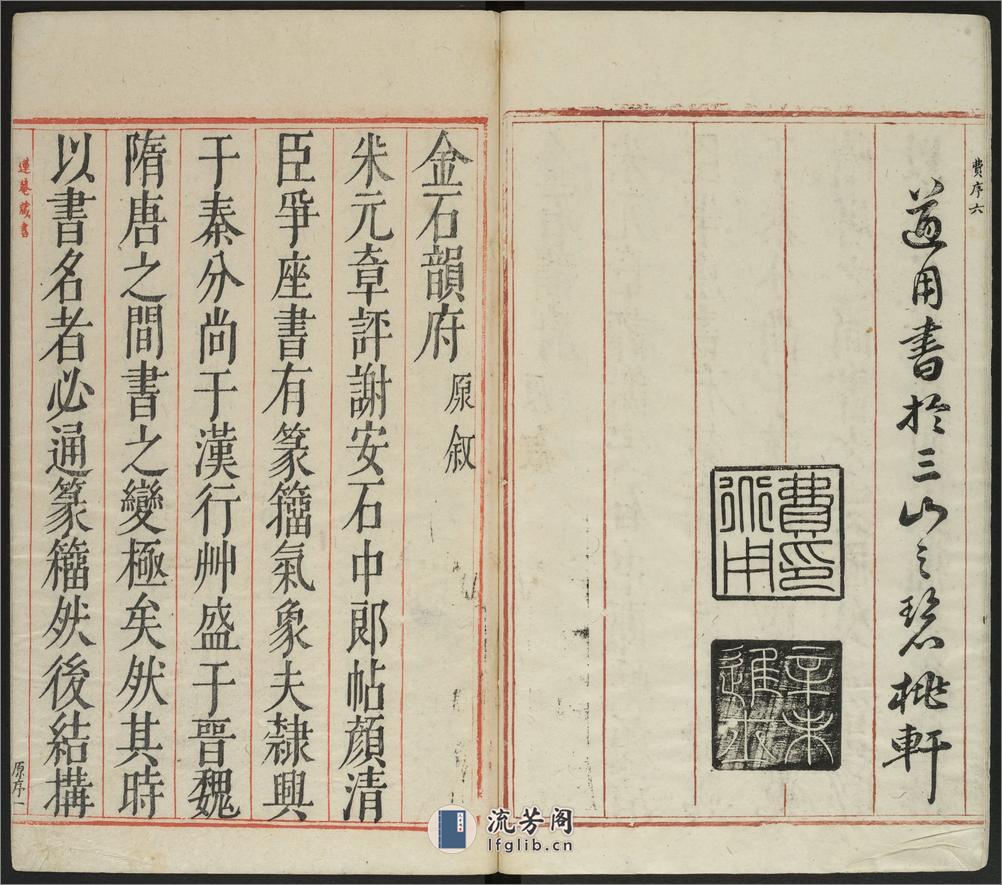 費序六
道用書於三山之碧桃軒
費印道用
辛未進士
金石韻府 原叙
米元章評謝安石中郎帖顏清
臣爭座書有篆籀氣象夫隸興
于秦分尚于漢行艸盛于晉魏
隋唐之間書之變極矣然其時
以書名者必通篆籀然後結搆
蓮菴藏書
原序一
流芳阁
lfglib.cn